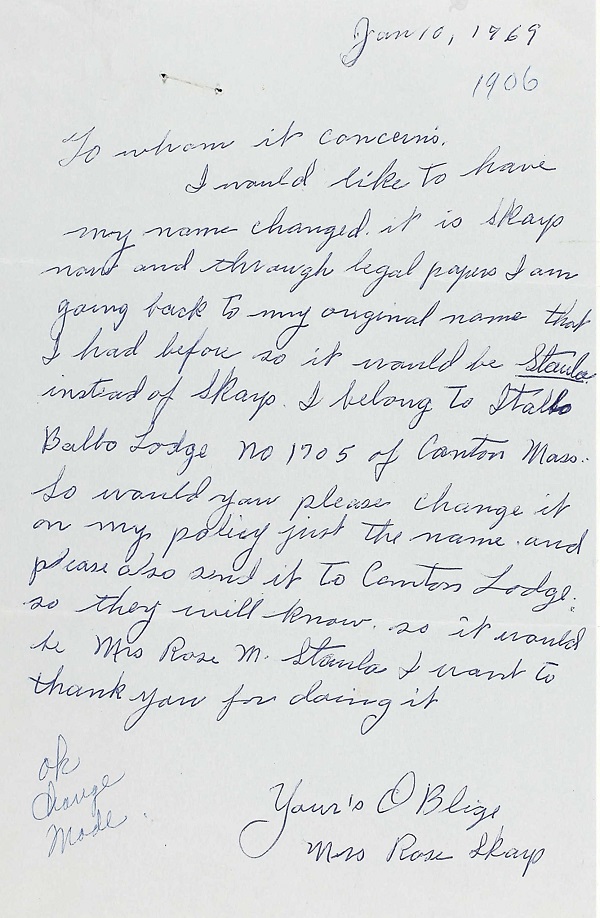 Jan 10, 1969
1906
To whom it concerns.
I would like to have
my name changed. it is Skayp
now and through legal papers I am
going back to my original name that
I had before so it would be Staula.
instead of Skayp. I belong to Itallo
Balbo Lodge No 1705 of Canton Mass.
So would you please change it
on my policy just the name. and
please also send it to Canton Lodge.
so they will know. so it would
be Mrs Rose M. Staula I want to
thank you for doing it
ok
Change
Made.
Your's O Blige
Mrs Rose Skayp